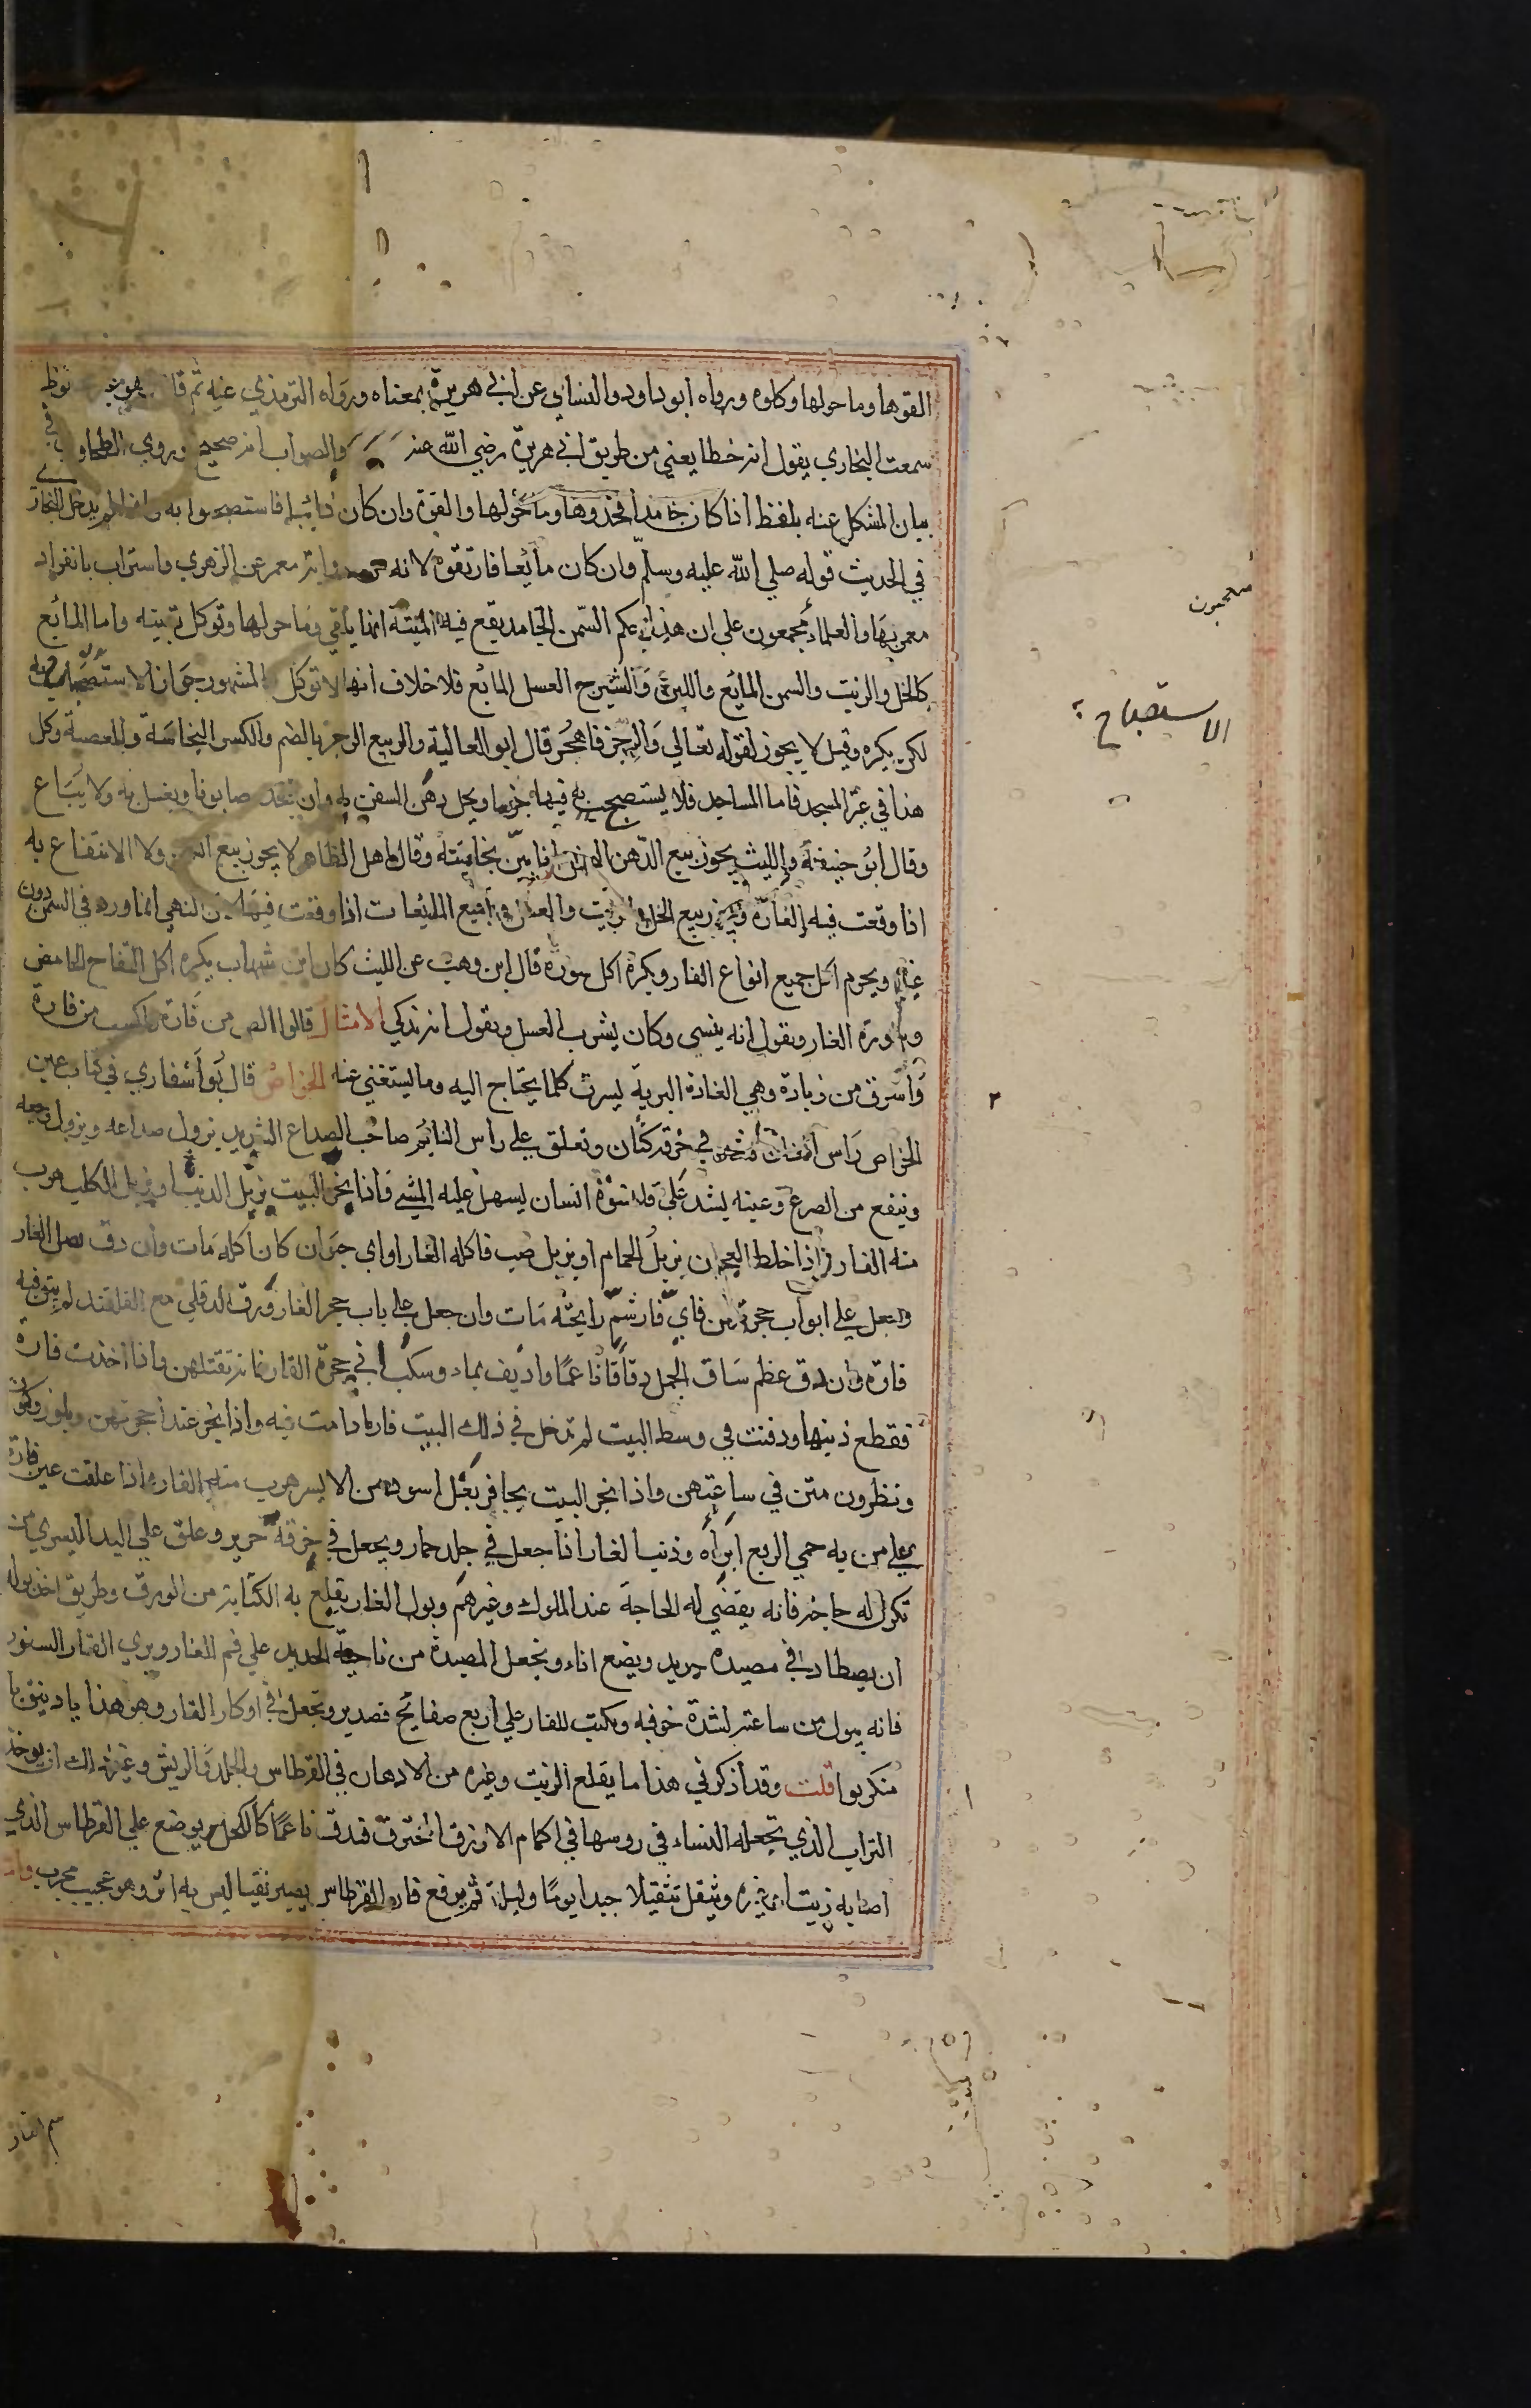 القوها وما حولها وكلوه ورواه ابو داود والنساي عن ابي هريرة بمعناه ورواه الترمذي عنه ثم قال هو غير محفوظ
سمعت البخاري يقول انه خطا يعني من طريق ابي هريرة رضي الله عنه والصواب انه صحيح وروي الطحاوي في
بيان المشكل عنه بلفظ اذا كان جامدا فخذوها وما حولها والقوه وان كان ذائبا فاستصبحوا به وانما لم يدخل البخاري
في الحديث قوله صلي الله عليه وسلم وان كان مايعا فلا تقربوه لانه من رواية معمر عن الزهري واستراب بانفراد
معمر بها والعلماء مجمعون علي ان هذا حكم السمن الجامد يقع فيه الميتة انها يلقي وما حولها وتوكل بقيته واما المائع
كالخل والزيت والسمن المايع واللبن والشيرج العسل المايع فلا خلاف انها لا توكل المشهور جواز الاستصباح به
لكن يكره وقيل لا يجوز لقوله تعالي والرجز فاهجر قال ابو العالية والربيع الرجز بالضم والكسر النجاسة والمعصية وكل
هذا في غير المسجد فاما المساجد فلا يستصبح به فيها جزما ويحل دهن السفن به وان يتخذ صابونا ويغسل به ولا يباع
وقال ابو حنيفة والليث يجوز بيع الدهن اذا بين نجاسته وقال اهل الظاهر لا يجوز بيع السمن ولا الانتفاع به
اذا وقعت فيه الفارة ويجوز بيع الخل والزيت والعسل وجميع المايعات اذا وقعت فيها لان النهي انما ورد في السمن دون
غيره ويحرم اكل جميع انواع الفار ويكره اكل سوره قال ابن وهب عن الليث كان ابن شهاب يكره اكل التفاح الحامض
وسورة الفار ويقول انه ينسي وكان يشرب العسل ويقول انه يذكي الامثال قالوا الص من فارة واكسب من فارة
واسرق من زبابة وهي الفارة البرية يسرق كلما يحتاج اليه وما يستغني عنه الخواص قال في كتاب عين
الخواص راس الفار في خرقة كتان وتعلق علي راس النايم صاحب الصداع الشديد يزول صداعه ويزول وجعه
وينفع من الصرع وعينه يشد علي قلنسوة انسان يسهل عليه المشي فاذا بخر البيت بزبل الذيب او زبل الكلب هرب
منه الفار واذا خلط العجين بزبل الحمام او بزبل صب فاكله الفار او اي حيوان كان اكله مات وان دق بصل الفار
وجعل علي ابواب حجرتهن فاي فار شم رايحته مات وان جعل علي باب حجر الفار ورق الدفلي مع القلقند لم يبق فيه
فارة وان دق عظم ساق الجمل دقا ناعما واديف بماء وسكب في حجرة الفار فانه يقتلهن واذا اخذت فارة
فقطع ذنبها ودفنت في وسط البيت لم تدخل في ذلك البيت فار ما دامت فيه واذا بخر عند احجرتهن وكمون
ونطرون متن في ساعتهن واذا بخر البيت بحافر بغل اسود من الايسر هرب منه الفار واذا علقت عين فارة
علي من به حمي الربع ابراه وذنب الفار اذا جعل في جلد حمار ويجعل في خرقة حرير وعلق علي اليد اليسري من
تكون له حاجة فانه يقضي له الحاجة عند الملوك وغيرهم وبول الفار يقلع به الكتابة من الورق وطريق اخذ بوله
ان يصطاد في مصيدة حديد ويضع اناء ويجعل المصيدة من ناحية الحديد علي فم الفار ويري الفار السنور
فانه يبول من ساعته لشدة خوفه ويكتب للفار علي اربع صفايح قصدير وتجعل في اوكار الفار وهو هذا
قلت وقد اذكر في هذا ما يقلع الزيت وغيره من الادهان في القرطاس والجلد والريش وغيره ذلك ان يوخذ
التراب الذي تجعله النساء في روسها في اكمام الازرق فيدق ناعما كالكحل ويوضع علي القرطاس الذي
اصابه زيت او غيره ويثقل تثقيلا جيدا يوما وليلة ثم يرفع فان القرطاس يصير نقيا ليس به اثر وهو عجيب مجرب
الاستصباح
سم الفار